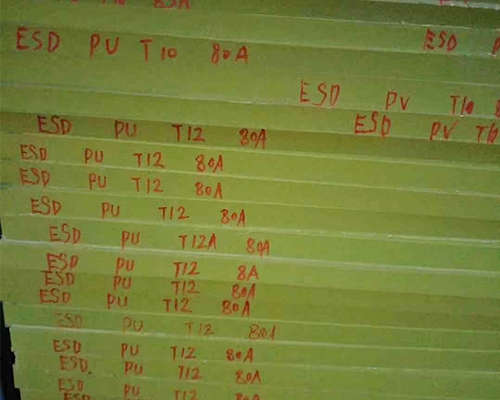 80A
ESD PU T10 80A
ESD
ESD PV T10
ESD PV T10
ESD PU T12 80A
ESD PU T12 80A
ESD PU T12 80A
ESD PU T12 80A
ESD PU T12A 80A
ESD PU T12 8A
ESD PU T12 80A
ESD PU T12 80A
ESD PU T12 80A
ESD PU T12 80A
ESD. PU T12 80A
ESD PU T12 80A
ESD